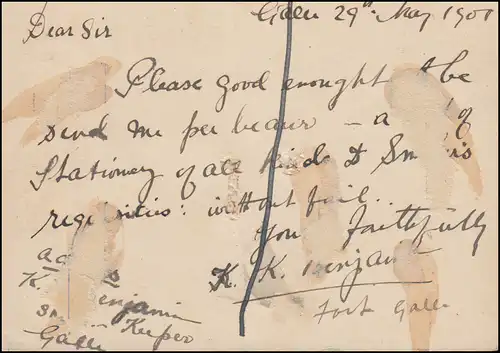 Galle 29th May 1901
Dear Sir
Please good enought t be
send me per bearer - a of
Stationery of all kinds &
requisities: without fail..
You faithfully
K. K. Benjamin
Fort Galle
K. Benjamin
Keeper
Galle